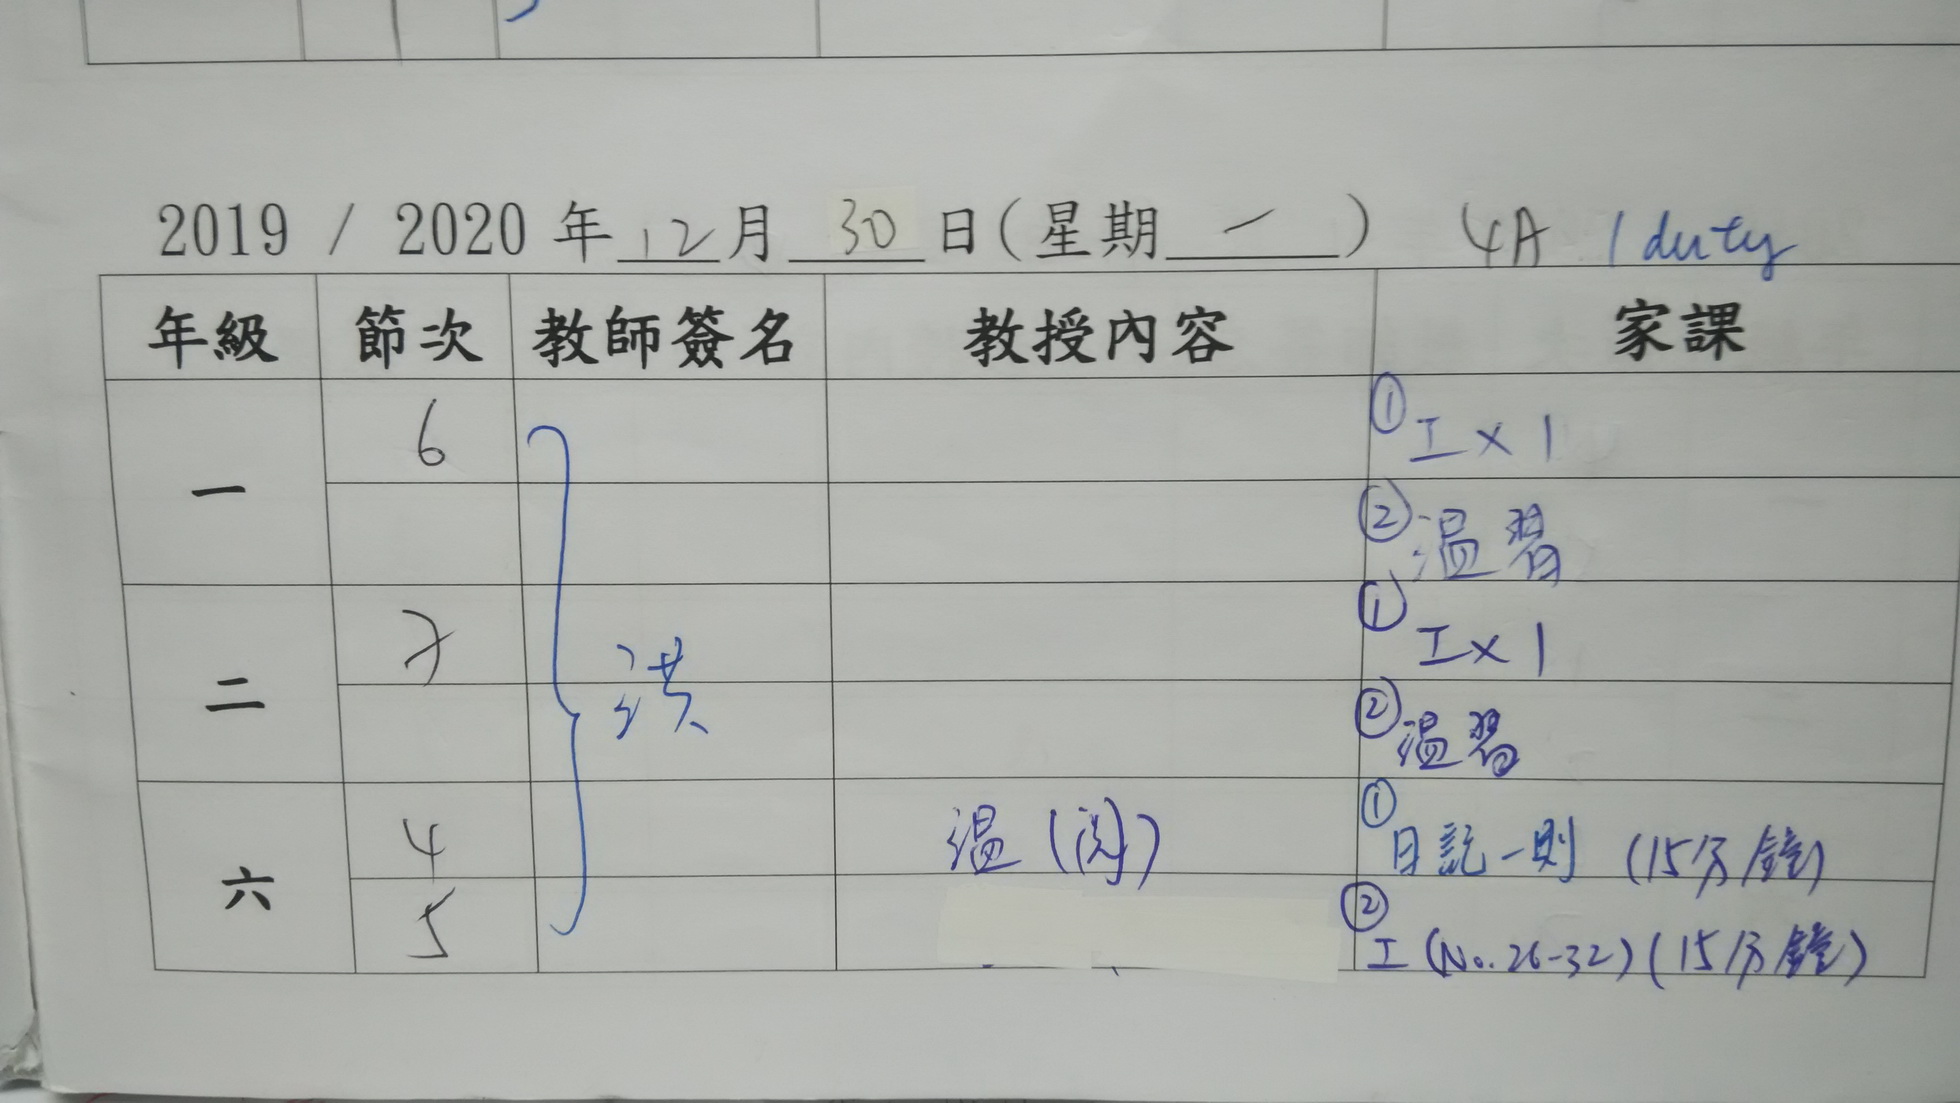 2019 / 2020 年 12 月 30 日(星期 一 ) 4A 1 duty
年級 節次 教師簽名 教授內容 家課
一 6 ① 工 x 1
② 温習
二 7 洪 ① 工 x 1
② 温習
六 4 温 (閱) ① 日記一則 (15分鐘)
5 ② 工 (No. 26-32) (15分鐘)